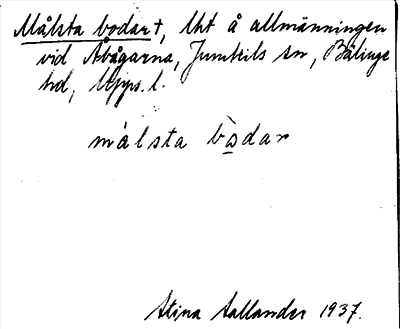 Målsta bodar †, lht å allmänningen
vid Åbågarna, Jumkils sn, Bälinge
hd, Upps. l.
målsta bo̲dar
Stina Sallander 1937.